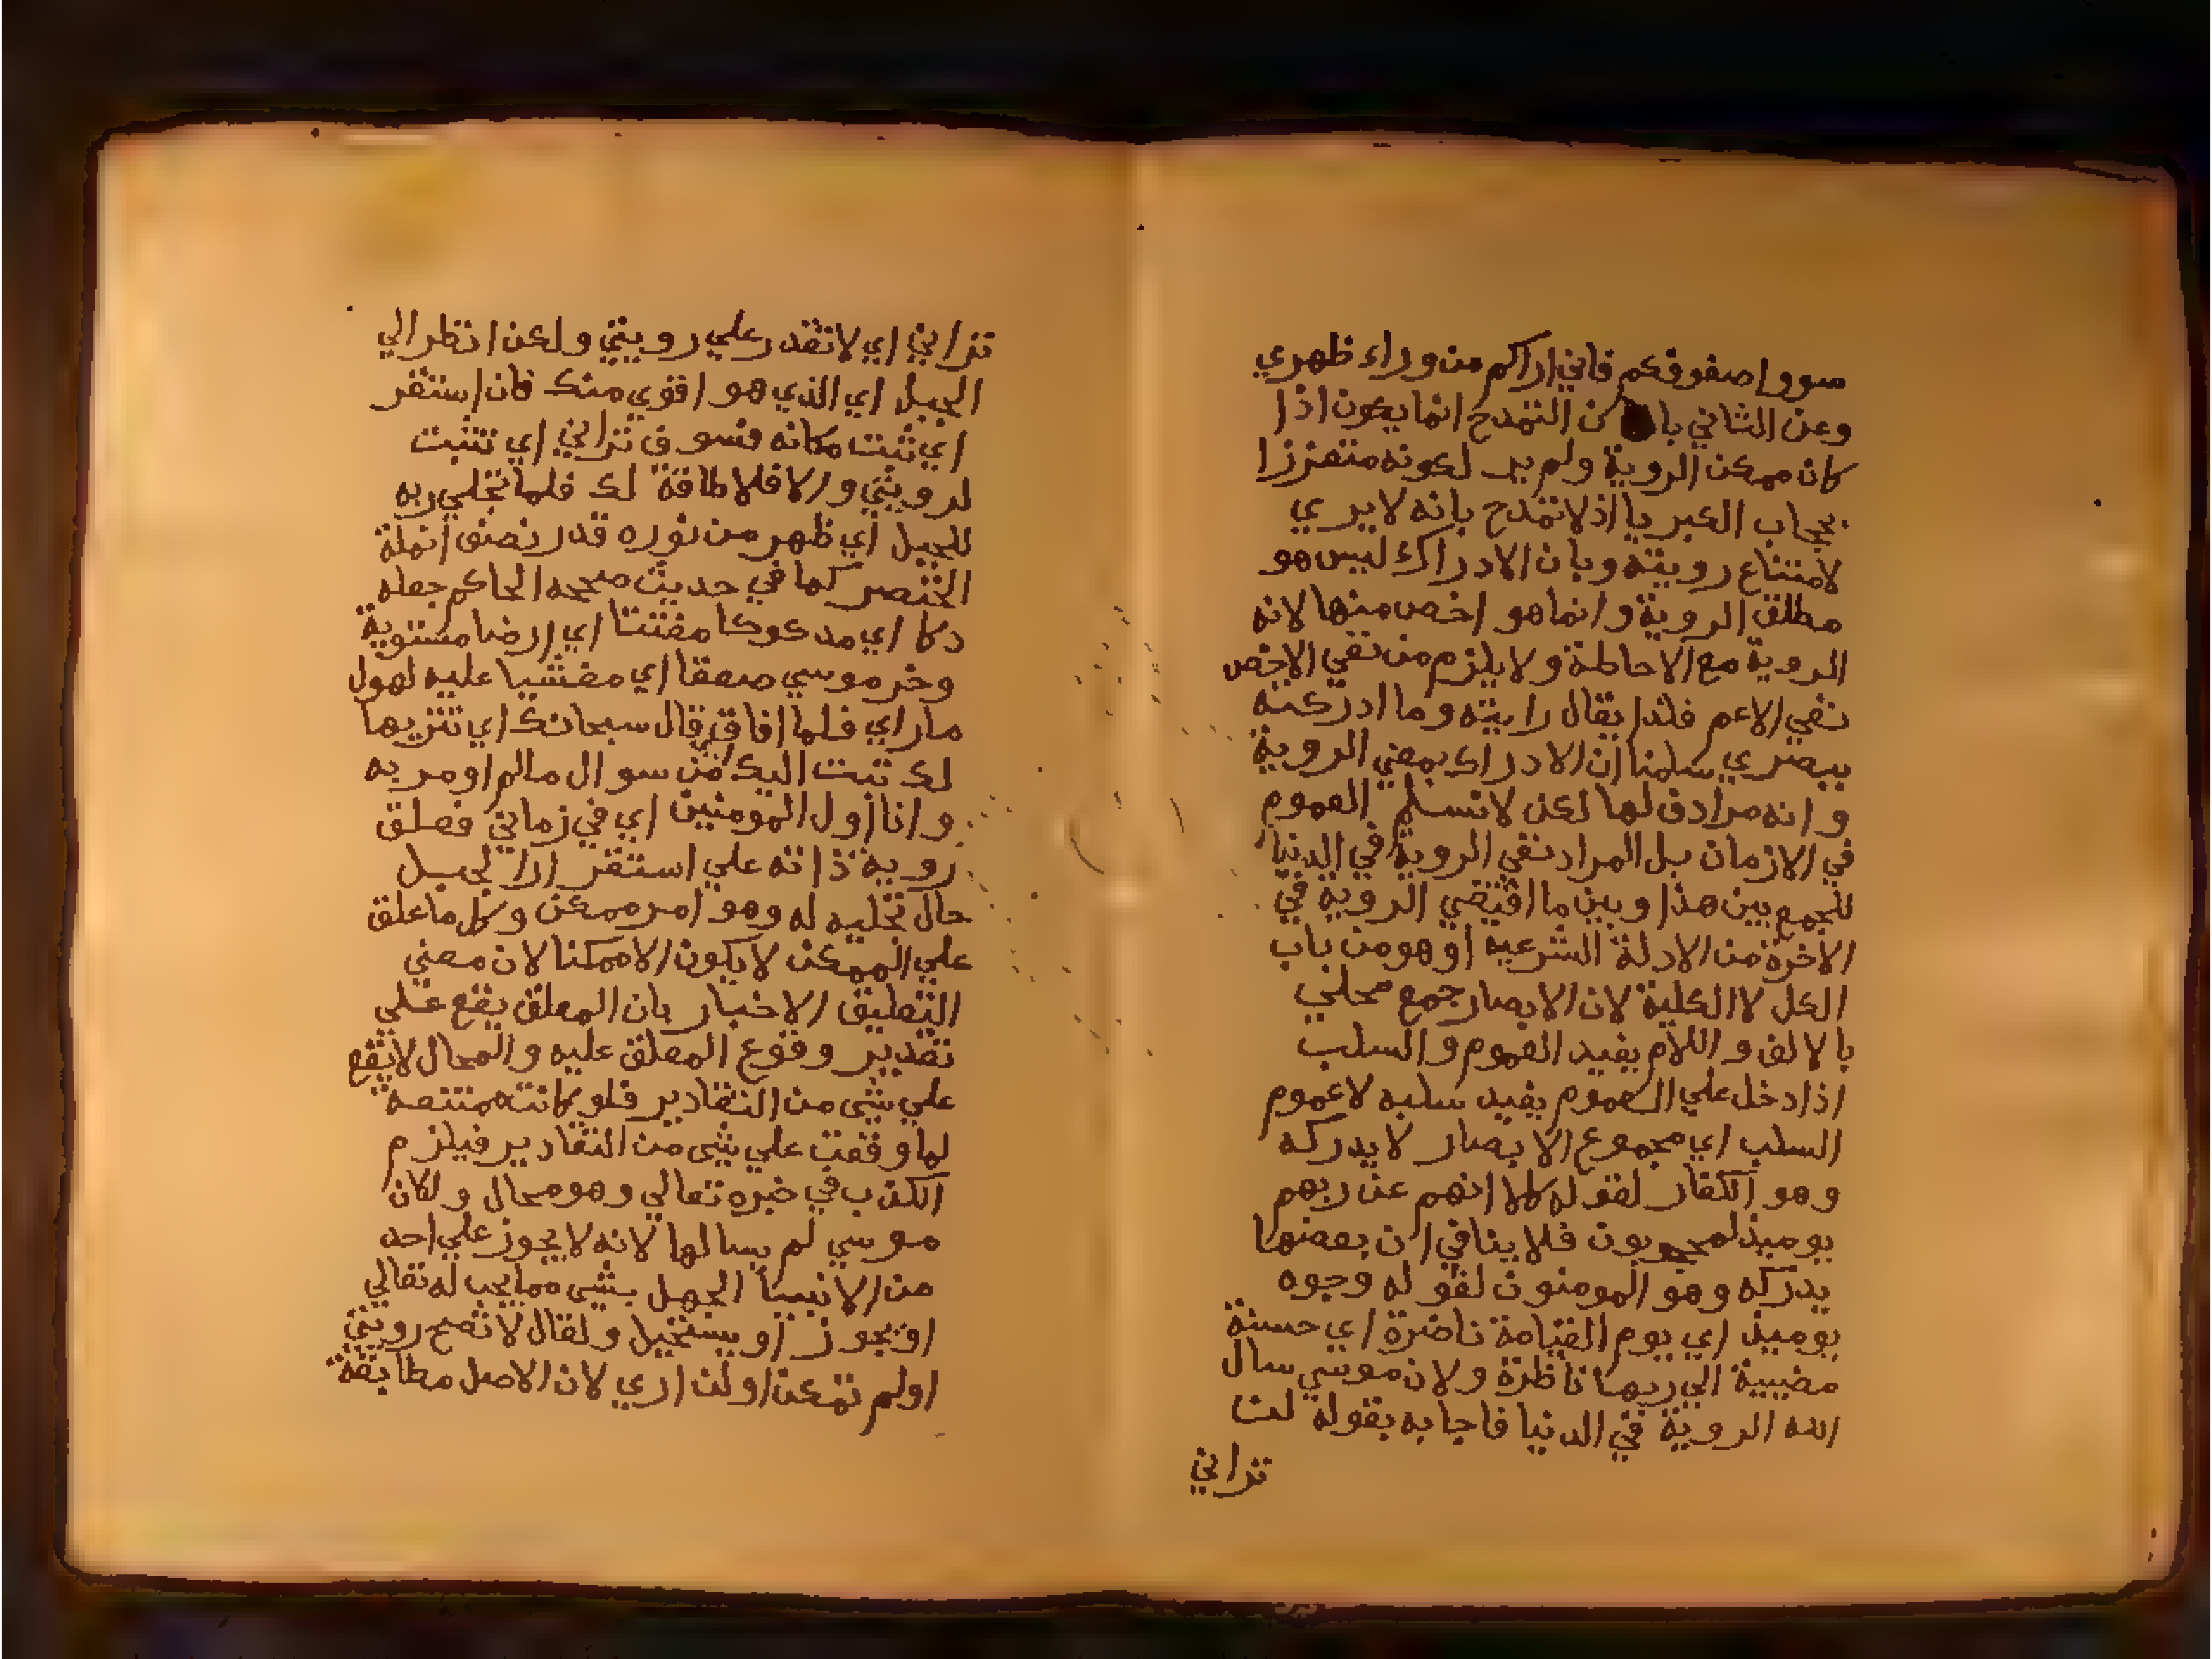 سووا صفوفكم فاني اراكم من وراء ظهري
وعن الثاني بان التمدح انما يكون اذا
كان ممكن الروية ولم ير لكونه متعززا
بحجاب الكبريا اذ لا تمدح بانه لا يري
لامتناع رويته وبان الادراك ليس هو
مطلق الروية وانما هو اخص منها لانه
الروية مع الاحاطة ولا يلزم من نفي الاخص
نفي الاعم فلذا يقال رايته وما ادركته
ببصري سلمنا ان الادراك بمعني الروية
وانه مرادف لها لكن لا نسلم العموم
في الازمان بل المراد نفي الروية في الدنيا
للجمع بين هذا وبين ما اقتضي الروية في
الاخرة من الادلة الشرعيه او هو من باب
الكل لا الكلية لان الابصار جمع محلي
بالالف واللام يفيد العموم والسلب
اذا دخل علي العموم يفيد سلبه لا عموم
السلب اي مجموع الابصار لا يدركه
وهو الكفار لقوله كلا انهم عن ربهم
يوميذ لمحجوبون فلا ينافي ان بعضها
يدركه وهو المومنون لقوله وجوه
يوميذ اي يوم القيامة ناضرة اي حسنة
مضيية الي ربها ناظرة ولان موسي سال
الله الروية في الدنيا فاجابه بقوله لن
تراني
تراني اي لا تقدر علي رويتي ولكن انظر الي
الجبل اي الذي هو اقوي منك فان استقر
اي ثبت مكانه فسوف تراني اي تثبت
لرويتي والا فلا طاقة لك فلما تجلي ربه
للجبل اي ظهر من نوره قدر نصف انملة
الخنصر كما في حديث صححه الحاكم جعله
دكا اي مدكوكا مفتتا اي ارضا مستوية
وخر موسي صعقا اي مغشيا عليه لهول
ما راي فلما افاق قال سبحانك اي تنزيها
لك تبت اليك من سوال ما لم اومر به
وانا اول المومنين اي في زماني فعلق
روية ذاته علي استقرار الجبل
حال تجليه له وهو امر ممكن وكل ما علق
علي الممكن لا يكون الا ممكنا لان معني
التعليق الاخبار بان المعلق يقع علي
تقدير وقوع المعلق عليه والمحال لا يقع
علي شي من التقادير فلو كانت ممتنعة
لما وقعت علي شي من التقادير فيلزم
الكذب في خبره تعالي وهو محال ولان
موسي لم يسالها لانه لا يجوز علي احد
من الانبيا الجهل بشي مما يجب له تعالي
او يجوز او يستحيل ولقال لا تصح رويتي
اولم تمكن او لن اري لان الاصل مطابقة